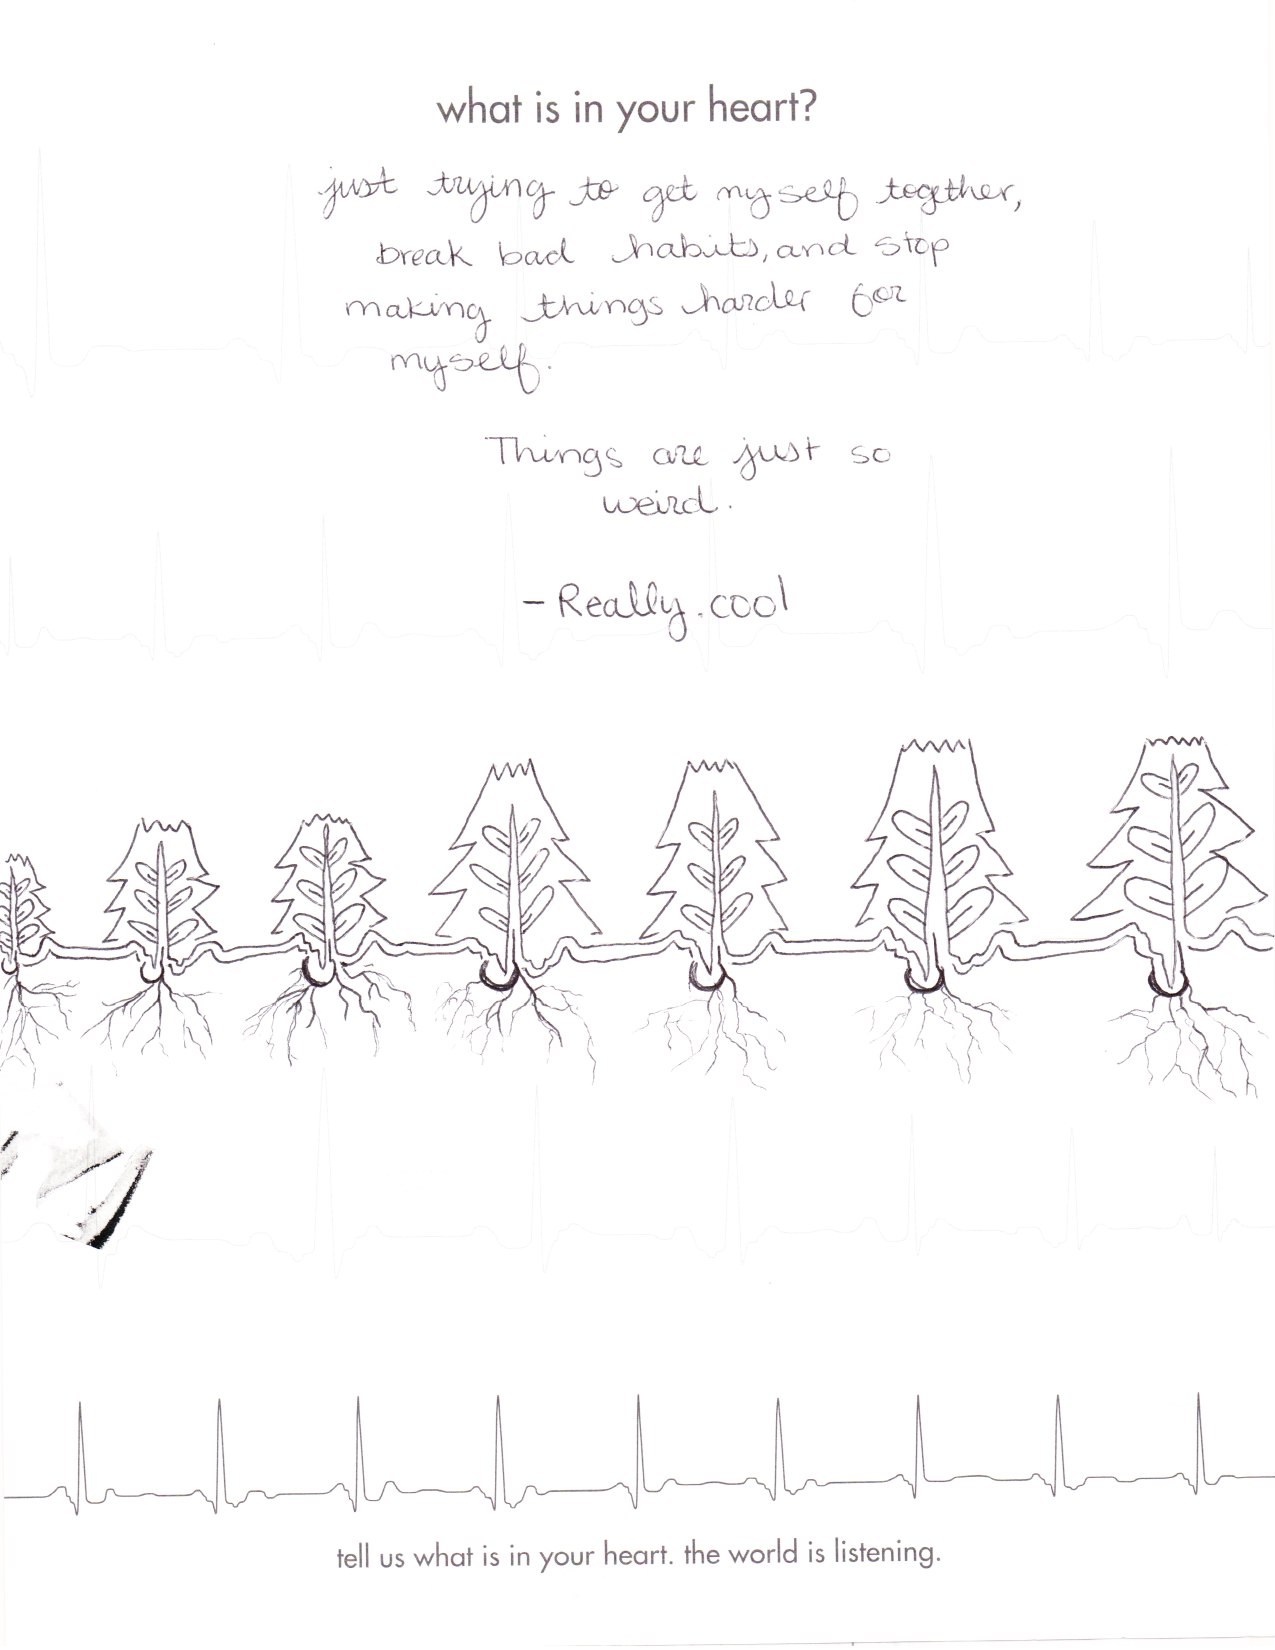 what is in your heart?
just trying to get myself together,
break bad habits, and stop
making things harder for
myself.
Things are just so
weird.
- Really.cool
tell us what is in your heart. the world is listening.